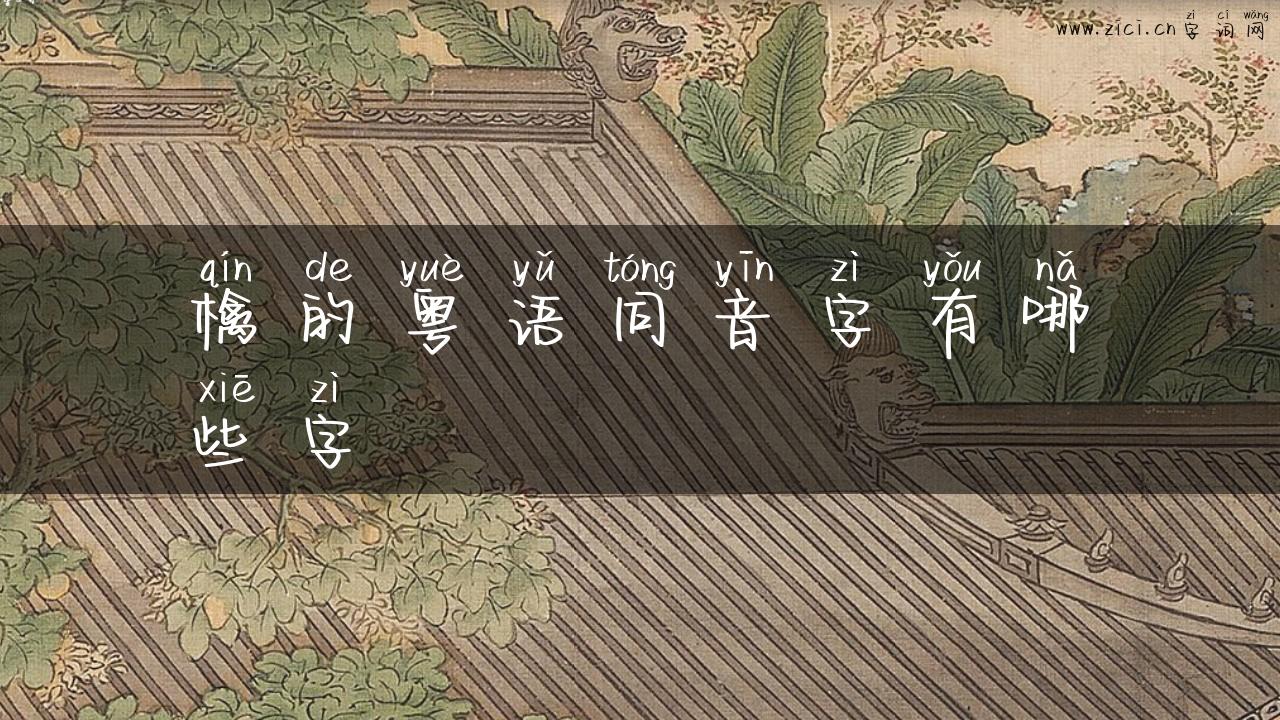 zì cí wǎng
www.zici.cn 字 词 网
qín de yuè yǔ tóng yīn zì yǒu nǎ
檎 的 粤 语 同 音 字 有 哪
xiē zì
些 字